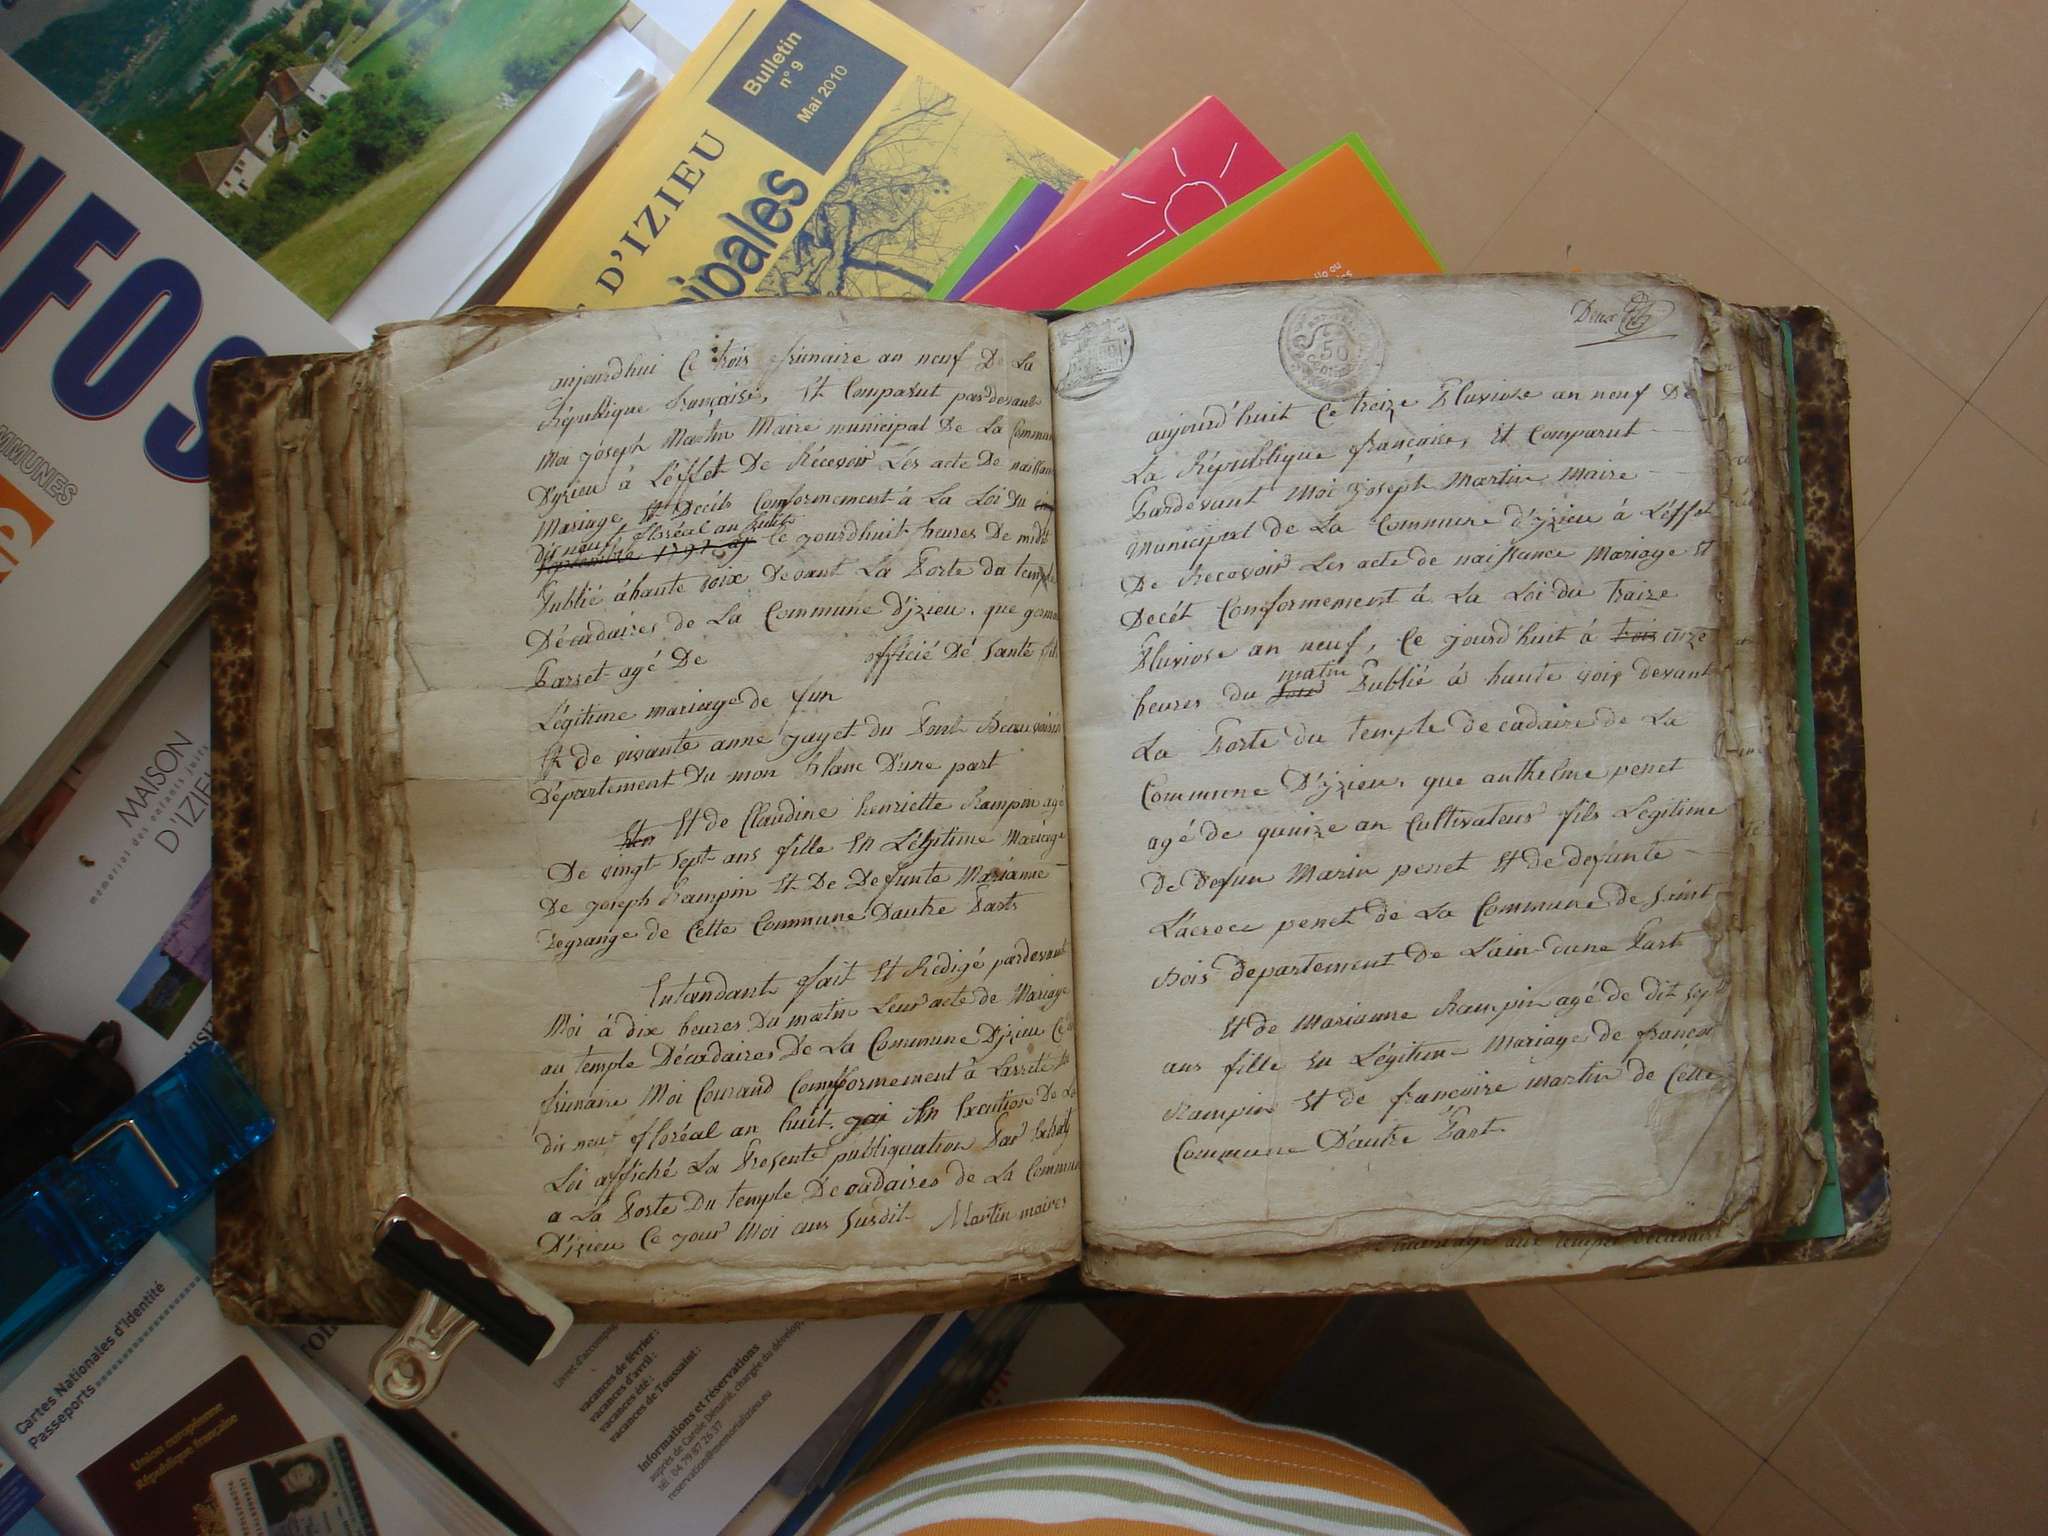 NFOS
MMUNES
MAISON
D'IZIEU
mémorial des enfants juifs
Bulletin
n° 9
Mai 2010
D'IZIEU
cipales
aujourd'hui Ce trois frimaire an neuf De La
République française, Et Comparut pardevant
Moi joseph Martin Maire municipal De La Commune
D'yzieu à L'éffet De Récevoir Lés acte De naissance
Mariage Et Décès Comformement à La Loi du
dix neuf floréal an huit
septembre 1792 Ce jourdhuit heures De midit
Publié à haute voix Devant La Porte du temple
Décadaires de La Commune D'yzieu. que
Parret agé De officié Dé Santé fils
Légitime mariage de fun
Et de vivante anne jayet du Pont Beauvoisin
Département Du mon blanc D'une part
Et de Claudine henriette Rampin agé
De vingt Sept ans fille En Légitime Mariage
De joseph Rampin Et De Defunte Marianne
Legrange de Cette Commune D'autre Part
Entandant fait Et Rédigé pardevant
Moi à dix heures Du matin Leur acte de Mariage
au temple Décadaires De La Commune D'yzieu Ce
frimaire Moi Courand Comfformement à Larrété du
dix neuf floréal an huit. jai En Excution De La
Loi affiché La Présente publiquation Par Extrait
a La Porte Du temple Décadaires de La Commune
D'yzieu Ce jour Moi ans Susdit Martin maires
50
Deux
aujourd'huit Ce treize Pluviose an neuf De
La République française, Et Comparut
Pardevant Moi joseph Martin Maire
Municipal De La Commune d'yzieu à L'éffet
De Recevoir Les acte de naissance Mariage Et
Decét Comformement à La Loi du traize
Pluviose an neuf, Ce jourd'huit à trois onze
matin
heures du Publié à haute voix devant
La Porte du temple decadaire de La
Commune D'yzieu, que anthelme penet
agé de quinze an Cultivateur fils Légitime
De defun Marin penet Et de defunte
Lacroce penet de La Commune de Saint
Bois departement De L'ain dune Part
Et de Marianne Rampin agé de dit Sept
ans fille En Légitime Mariage de françois
Rampin Et de francoise martin de Cétte
Commune D'autre Part
Cartes Nationales d'Identité
Passeports
Union européenne
République française
Livret d'accueil
vacances de février :
vacances d'avril :
vacances été :
vacances de Toussaint :
Informations et réservations
auprès de Carole Dénarié, chargée du dévelop
tél : 04 79 87 26 37
reservation@memorializieu.eu